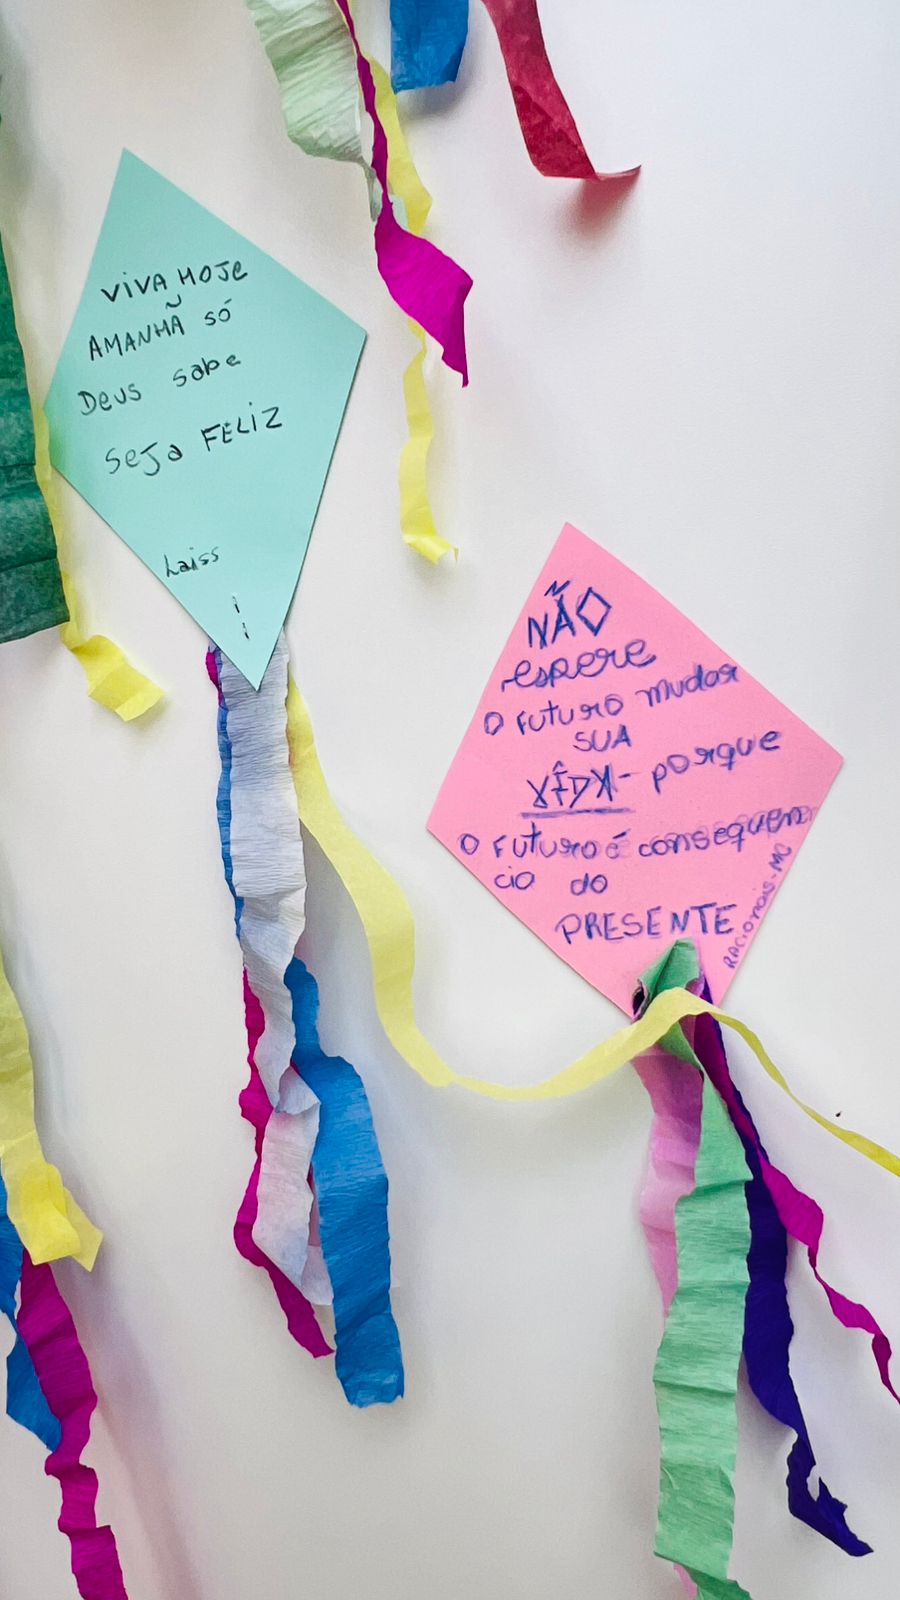 VIVA HOJE
AMANHÃ SÓ
Deus sabe
Seja FELIZ
Laiss
NÃO
espere
O FUTURO mudar
SUA
VIDA- porque
O FUTURO é consequen
cia do
PRESENTE
RACIONAIS-MC